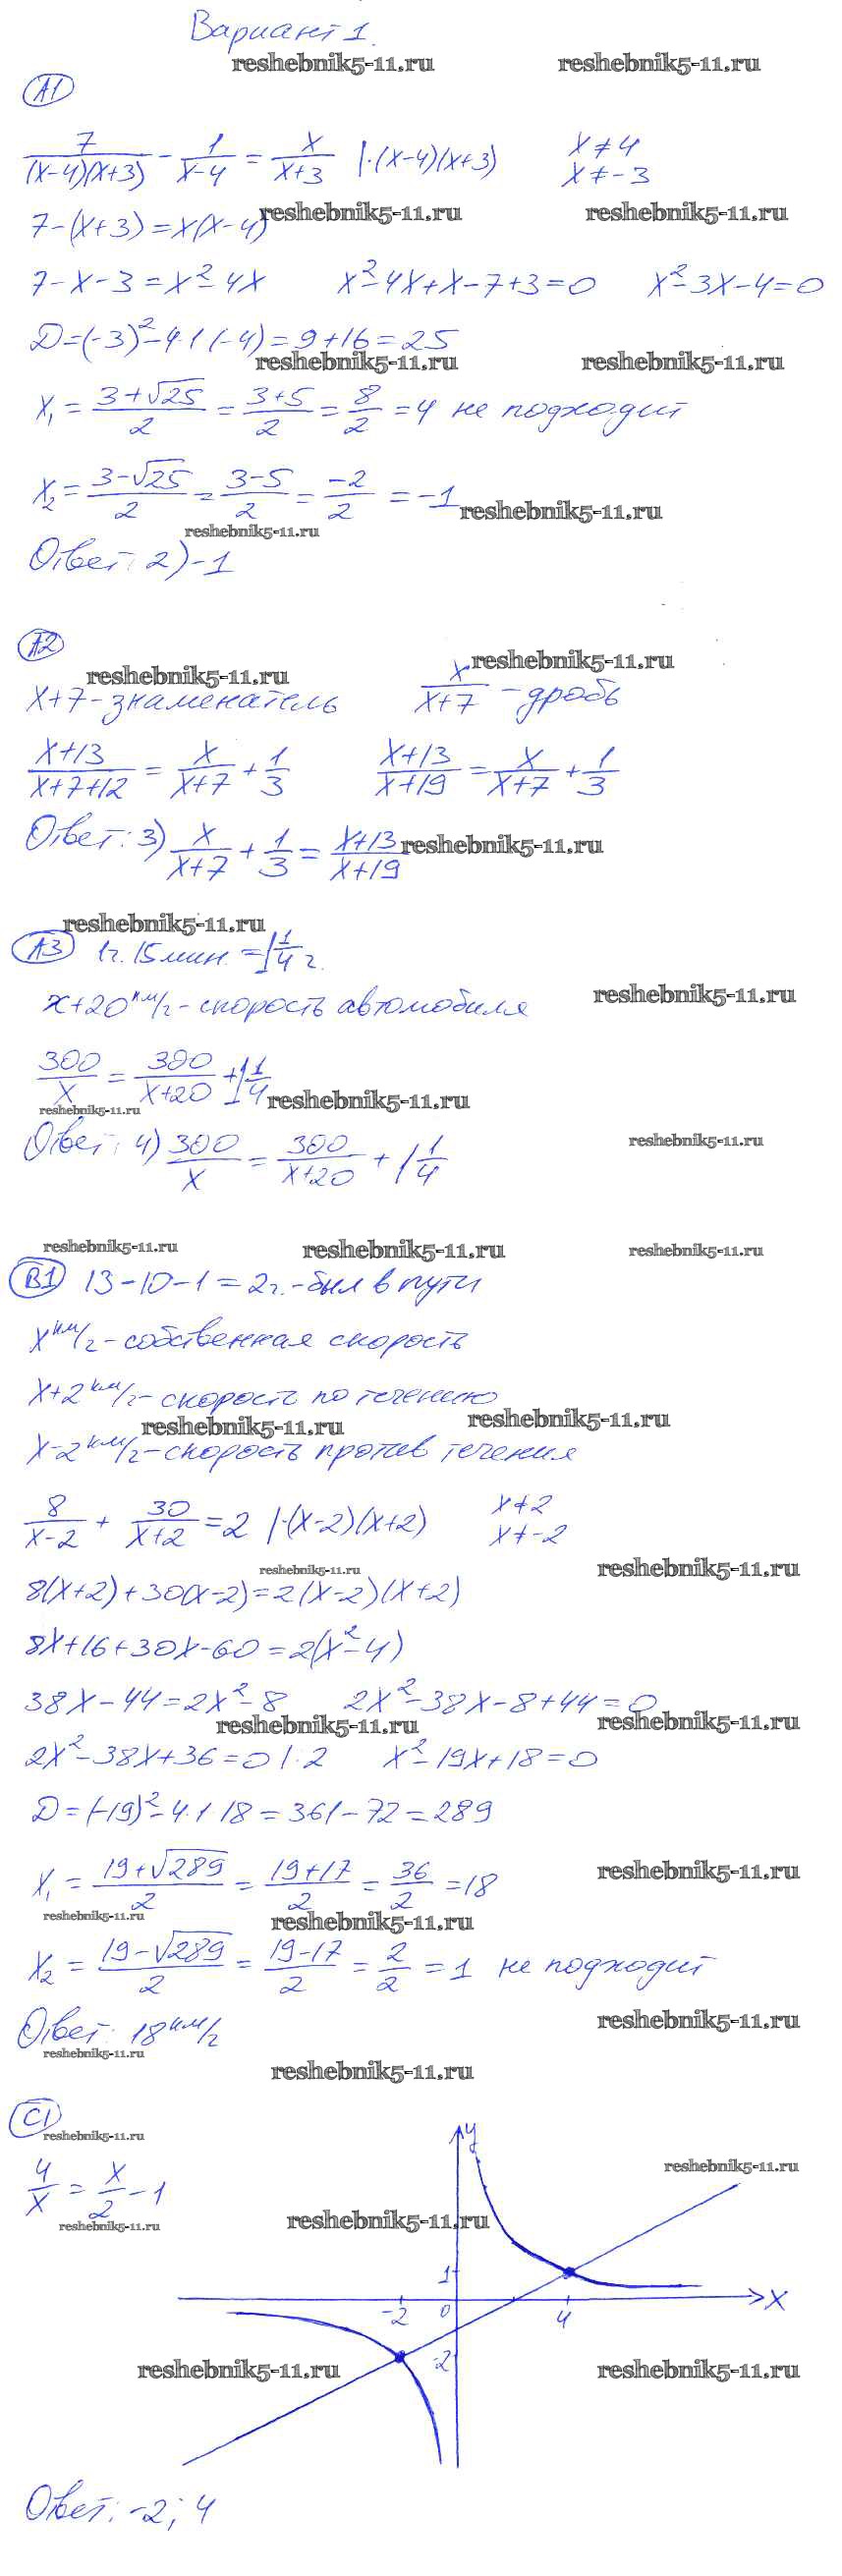 Вариант 1.
reshebnik5-11.ru reshebnik5-11.ru
А1
7/((x-4)(x+3)) - 1/(x-4) = x/(x+3) |·(x-4)(x+3) x≠4
x≠-3
7-(x+3)=x(x-4) reshebnik5-11.ru reshebnik5-11.ru
7-x-3=x²-4x x²-4x+x-7+3=0 x²-3x-4=0
D=(-3)²-4·1·(-4)=9+16=25
reshebnik5-11.ru reshebnik5-11.ru
x₁ = (3+√25)/2 = (3+5)/2 = 8/2 = 4 не подходит
x₂ = (3-√25)/2 = (3-5)/2 = -2/2 = -1 reshebnik5-11.ru
reshebnik5-11.ru
Ответ: 2) -1
А2
reshebnik5-11.ru reshebnik5-11.ru
x+7 - знаменатель x/(x+7) - дробь
(x+13)/(x+7+12) = x/(x+7) + 1/3 (x+13)/(x+19) = x/(x+7) + 1/3
Ответ: 3) x/(x+7) + 1/3 = (x+13)/(x+19) reshebnik5-11.ru
reshebnik5-11.ru
А3 1ч. 15 мин. = 1 1/4 ч.
x+20 км/ч - скорость автомобиля reshebnik5-11.ru
300/x = 300/(x+20) + 1 1/4 reshebnik5-11.ru
reshebnik5-11.ru
Ответ: 4) 300/x = 300/(x+20) + 1 1/4 reshebnik5-11.ru
reshebnik5-11.ru reshebnik5-11.ru reshebnik5-11.ru
В1 13-10-1=2ч. - был в пути
x км/ч - собственная скорость
x+2 км/ч - скорость по течению
reshebnik5-11.ru reshebnik5-11.ru
x-2 км/ч - скорость против течения
8/(x-2) + 30/(x+2) = 2 |·(x-2)(x+2) x≠2
x≠-2
reshebnik5-11.ru reshebnik5-11.ru
8(x+2)+30(x-2)=2(x-2)(x+2)
8x+16+30x-60=2(x²-4)
38x-44=2x²-8 2x²-38x-8+44=0
reshebnik5-11.ru reshebnik5-11.ru
2x²-38x+36=0 |:2 x²-19x+18=0
D=(-19)²-4·1·18=361-72=289
x₁ = (19+√289)/2 = (19+17)/2 = 36/2 = 18 reshebnik5-11.ru
reshebnik5-11.ru reshebnik5-11.ru
x₂ = (19-√289)/2 = (19-17)/2 = 2/2 = 1 не подходит
Ответ: 18 км/ч reshebnik5-11.ru
reshebnik5-11.ru reshebnik5-11.ru
С1
reshebnik5-11.ru y
4/x = x/2 - 1 reshebnik5-11.ru
reshebnik5-11.ru reshebnik5-11.ru
1
-2 0 4 x
-2
reshebnik5-11.ru reshebnik5-11.ru
Ответ: -2; 4